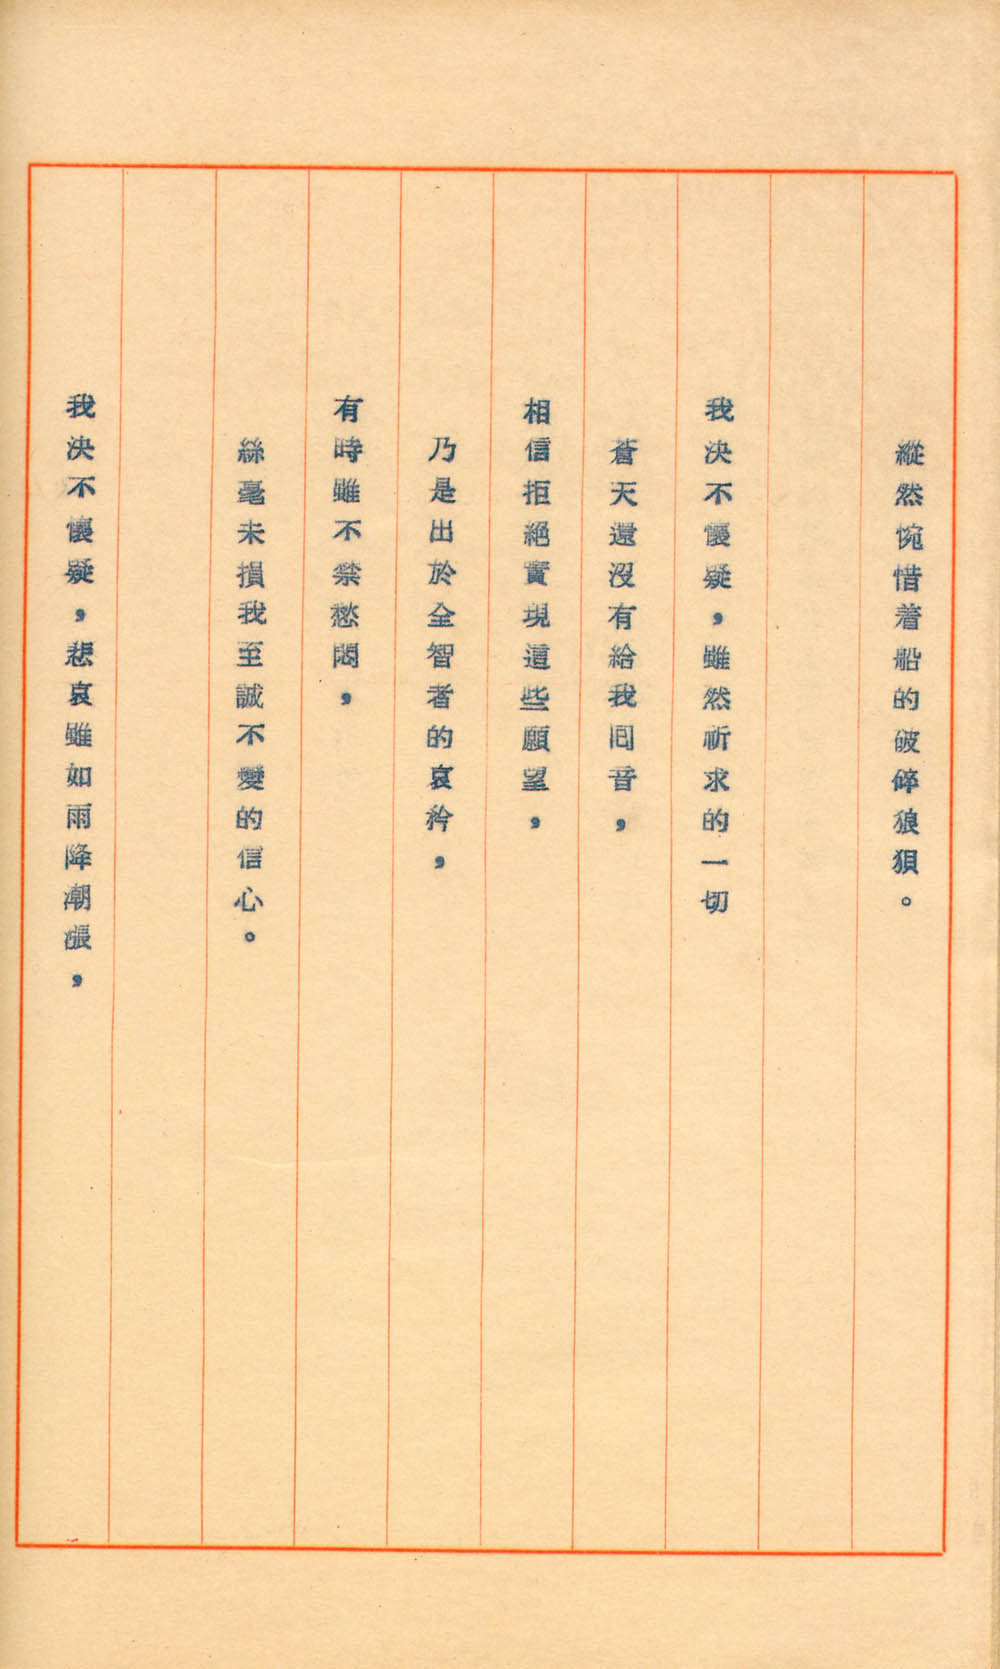 縱然惋惜着船的破碎狼狽。
我決不懷疑，雖然祈求的一切
蒼天還沒有給我囘音，
相信拒絕實現這些願望，
乃是出於全智者的哀矜，
有時雖不禁愁悶，
絲毫未損我至誠不變的信心。
我決不懷疑，悲哀雖如雨降潮漲，